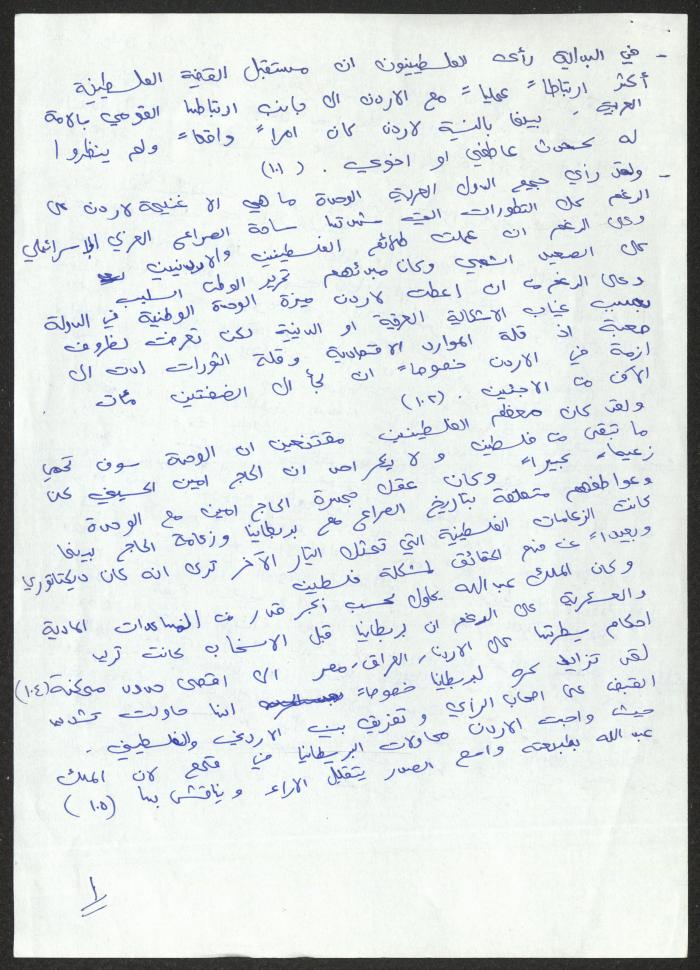 - في البداية رأى الفلسطينيون ان مستقبل القضية الفلسطينية
أكثر ارتباطاً عملياً مع الاردن الى جانب ارتباطها القومي بالامة
العربية - بينما بالنسبة لاردن كان امراً واقعاً ولم ينظروا
له كحدث عاطفي او اخوي . (١٠١)
- ولقد رأي جميع الدول العربية الوحدة ما هي الا غنيمة لاردن على
الرغم كل التطورات التي شهدتها ساحة الصراعى العربي الإسرائيلي
وعلى الرغم ان عملت طلائع الفلسطينين والاردنيين
على الصعيد الشعبي وكان مبدئهم تحرير الوطن السليب
وعلى الرغم من ان إعطت لاردن ميزة الوحدة الوطنية في الدولة
بسبب غياب الاشكالية العرقية او الدينية لكن تعرضت لظروف
صعبة اذ قلة الموارد الاقتصادية وقلة الثورات ادت الى
ازمة في الاردن خصوصاً ان لجأ الى الضفتين مئات
الآف من الاجئين . (١٠٢)
ولقد كان معظم الفلسطينين مقتنعين ان الوحدة سوف تحمي
ما تبقى من فلسطين ولا ينكر احد ان الحاج امين الحسيني كان
زعيماً كبيراً وكان عقل الحاج امين مع الوحدة
وعواطفهم متعلقة بتاريخ الصراعى مع بريطانيا وزعامة الحاج بينما
كانت الزعامات الفلسطينة التي تمثل التيار الآخر ترى انه كان ديكتاتوري
وبعيداً عن فهم الحقائق لمشكلة فلسطين
وكان الملك عبدالله يحاول كسب أكبر قدر من المساعدات المادية
والعسكرية على الرغم ان بريطانيا قبل الانسحاب كانت تريد
احكام سيطرتها على الاردن، العراق، مصر الى اقصى حدود ممكنة (١٠٤)
لقد تزايد كره لبريطانيا خصوصاً انها حاولت تشديد
القبض على اصحاب الرأي وتفريق بين الاردني والفلسطيني .
حيث واجهت الاردن محاولات البريطانيا في قمع لان الملك
عبدالله بطبيعته واسع الصدر يتقبل الاراء ويناقش بها (١٠٥)
١